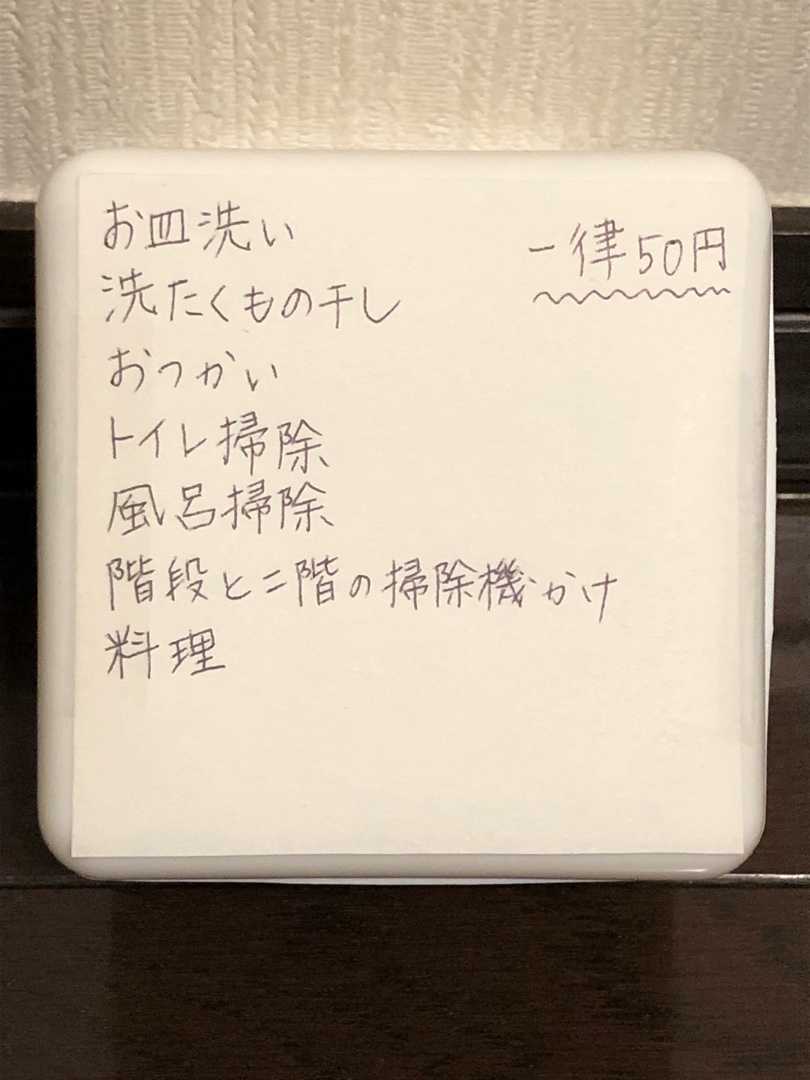 お皿洗い
一律50円
洗たくもの干し
おつかい
トイレ掃除
風呂掃除
階段と二階の掃除機かけ
料理